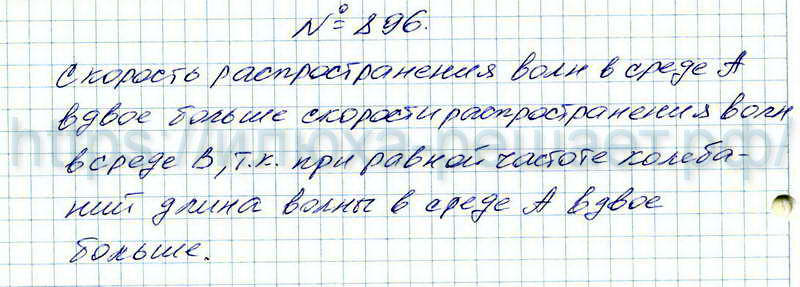 № 896.
Скорость распространения волн в среде А
вдвое больше скорости распространения волн
в среде В, т.к. при равной частоте колеба-
ний длина волны в среде А вдвое
больше.